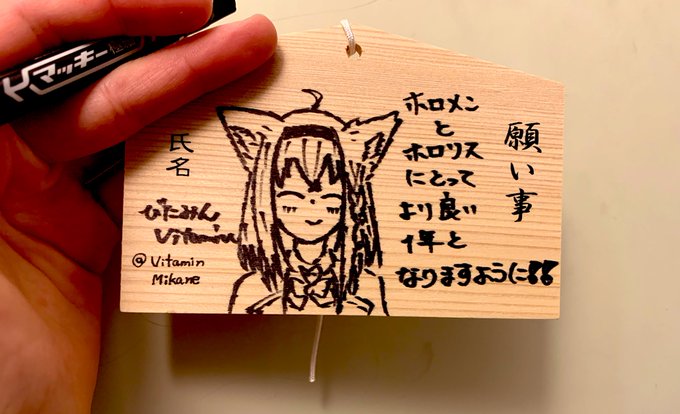 マッキー極細
願い事
ホロメン
と
ホロリス
にとって
より良い
1年と
なりますように!!
氏名
びたみん
Vitamin
@Vitamin
Mikane